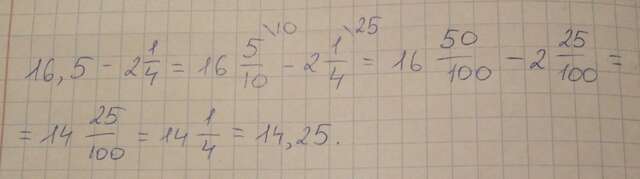 16,5 - 2 1/4 = 16 5/10 \10 - 2 1/4 \25 = 16 50/100 - 2 25/100 =
= 14 25/100 = 14 1/4 = 14,25.